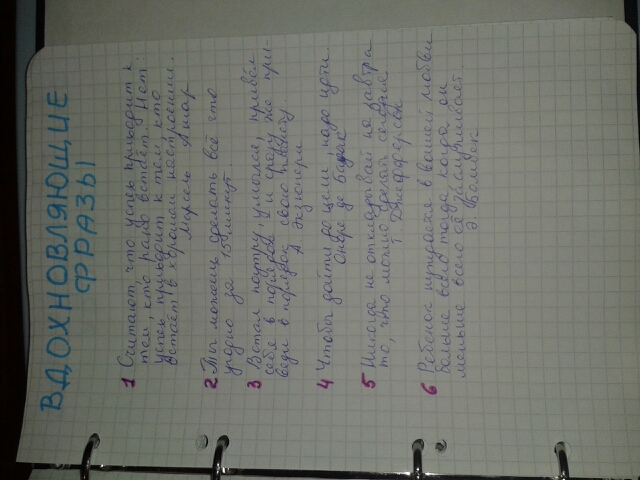 ВДОХНОВЛЯЮЩИЕ
ФРАЗЫ
1 Считают, что успех приходит к
тем, кто рано встаёт. Нет:
успех приходит к тем, кто
встаёт в хорошем настроении.
Марсель Ашар
2 Ты можешь сделать всё что
угодно за 15 минут.
3 Встал поутру, умылся, привёл
себя в порядок – и сразу же при-
веди в порядок свою планету.
А Экзюпери
4 Чтобы дойти до цели, надо идти.
Оноре де Бальзак
5 Никогда не откладывай на завтра
то, что можно сделать сегодня
Т. Джефферсон
6 Ребёнок нуждается в вашей любви
больше всего тогда, когда он
меньше всего её заслуживает.
Э. Бомбек